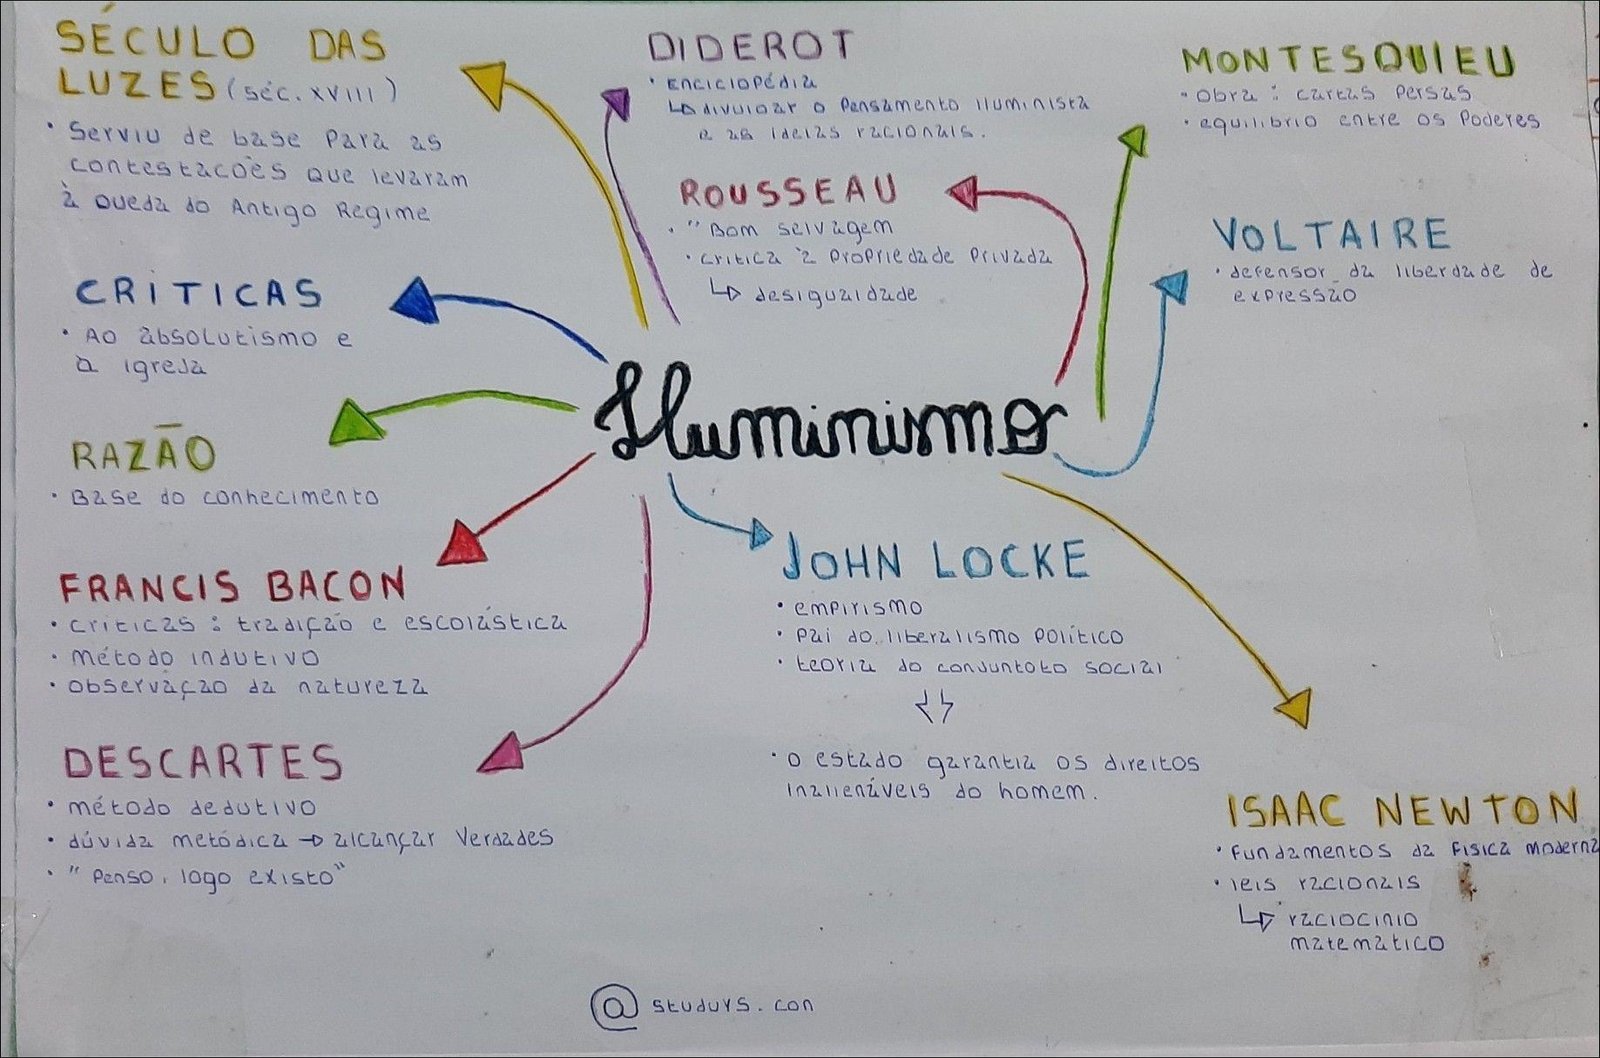 SÉCULO DAS
LUZES (séc. XVIII)
• Serviu de base para as
contestacoës que levaram
à queda do Antigo Regime
CRÍTICAS
• Ao absolutismo e
a igreja
RAZÃO
• Base do conhecimento
FRANCIS BACON
• críticas : tradição e escolástica
• método indutivo
• observação da natureza
DESCARTES
• método dedutivo
• dúvida metódica → alcançar verdades
• "Penso, logo existo"
DIDEROT
• enciclopédia
↳ divulgar o pensamento iluminista
e as ideias racionais.
ROUSSEAU
• "Bom selvagem
• critica à propriedade privada
↳ desigualdade
Iluminismo
JOHN LOCKE
• empirismo
• pai do liberalismo político
• teoria do conjuntoto social
• o estado garantia os direitos
inalienáveis do homem.
MONTESQUIEU
• obra : cartas persas
• equilibrio entre os poderes
VOLTAIRE
• defensor da liberdade de
expressão
ISAAC NEWTON
• fundamentos da física moderna
• leis racionais
↳ raciocinio
matemático
@studuys.con